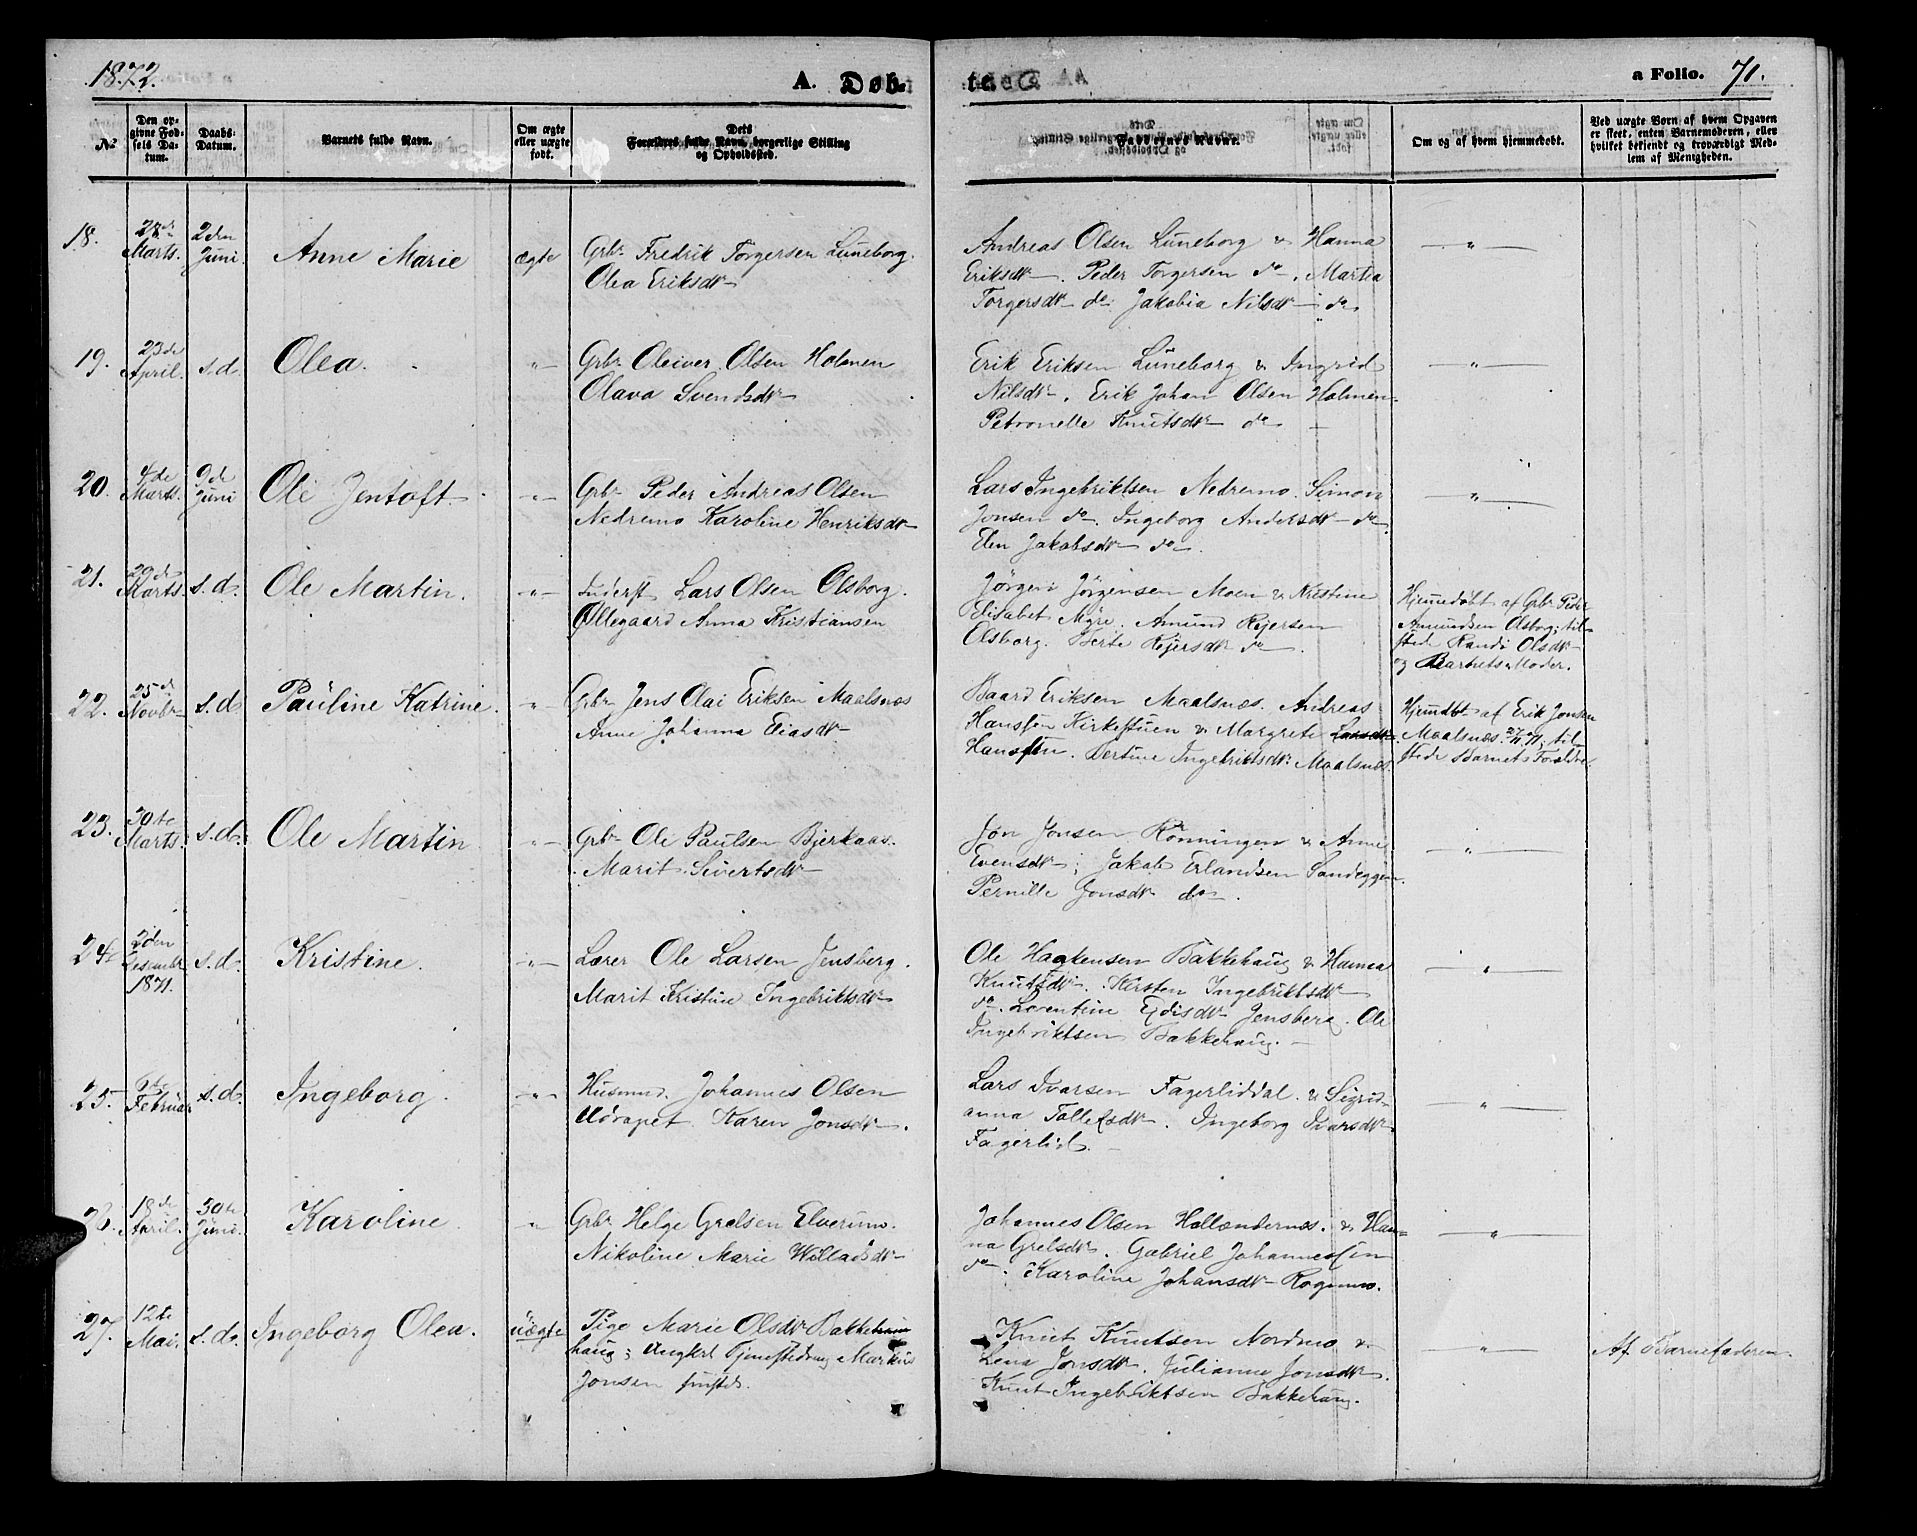 1872.
A. Døb-
te.
a Folio. 71.
No
Den opgivne Fødsels Datum.
Daabs-Datum.
Barnets fulde Navn.
Om ægte eller uægte født.
Dets Forældres fulde Navn, borgerlige Stilling og Opholdssted.
Faddernes Navne.
Om og af hvem hjemmedøbt.
Ved uægte Børn af hvem Opgaven er skeet, enten Barnemoderen, eller hvilket bekjendt og troværdigt Medlem af Menigheden.
18.
Marts.
2den Juni
Anne Marie
ægte
Grbr Fredrik Torgersen Luneborg.
Olea Eriksdtr
Andreas Olsen Luneborg & Hanna
Eriksdtr. Peder Torgersen do. Marta
Torgersdtr do: Jakobia Nilsdtr do
19.
23de April.
s.d.
Olea.
Grbr Oleiver Olsen Holmen
Olava Svendsdtr
Erik Eriksen Luneborg & Ingrid
Nilsdtr. Erik Johan Olsen Holmen.
Petronelle Knutsdtr do
20.
4de Marts.
9de Juni
Ole Jentoft.
Grbr Peder Andreas Olsen
Nedremo Karoline Henriksdtr
Lars Ingebriktsen Nedremo. Simon
Jonsen do. Ingeborg Andersdtr do
Elen Jakobsdtr do.
21.
29de Marts
s.d.
Ole Martin.
Inderst Lars Olsen Olsborg.
Ollegaard Anna Kristiansen
Jörgen Jörgensen Moen & Kristine
Elisabet Myre. Amund Rejersen
Elsborg. Berte Rejersdtr do.
Hjemmedöbt af Grbr Peder
Amundsen Olsborg; til-
stede Randi Olsdtr
og Barnets Moder.
22.
25de Novbr
s.d.
Pauline Katrine.
Grbr Jens Olai Eriksen Maalsnæs
Anne Johanna Eliasdtr
Baard Eriksen Maalsnæs. Andreas
Hanssen Kirkestuen & Margrete Larsdtr.
Hanssen. Bertine Ingebriktsdtr Maalsnæs.
Hjemdbt af Erik Jonsen
Maalsnæs 27/11 71; til-
stede Barnets Forældre.
23.
30te Marts.
s.d.
Ole Martin
Grbr Ole Paulsen Bjerkaas.
Marit Sivertsdtr
Jon Jonsen Rönningen & Anne
Evensdtr; Jakob Erlandsen Sandeggen.
Pernille Jonsdtr do.
24.
2den Desembr 1871.
s.d.
Kristine.
Lærer Ole Larsen Jensberg.
Marit Kristine Ingebriktsdtr
Ole Haakensen Bakkehaug & Hanna
Knutsdtr. Kirsten Ingebriktsdtr
do. Lorentine Edisdtr Jensberg. Ole
Ingebriktsen Bakkehaug.
25.
Februar
s.d.
Ingeborg.
Husmd. Johannes Olsen
Udrapet Karen Jonsdtr.
Lars Ivarsen Fagerliddal. & Sigrid-
anna Tollefsdtr. Ingeborg Ivarsdtr
Fagerlid.
26.
18de April.
30te Juni.
Karoline
Grbr Helge Grelsen Elverum.
Nikoline Marie Willadsdtr
Johannes Olsen Hollændernæs. & Han-
na Grelsdtr. Gabriel Johannessen
do; Karoline Johansdtr Rognmo.
27.
12te Mai.
s.d.
Ingeborg Olea.
uægte
Pige Marie Olsdtr Bakkehaug
haug; Ungkrl Tjenestedreng Markus
Jonsen
Knut Knutsen Nordmo &
Lena Jonsdtr. Julianne Jonsdtr.
Knut Ingebriktsen Bakkehaug.
Af Barnefaderen.